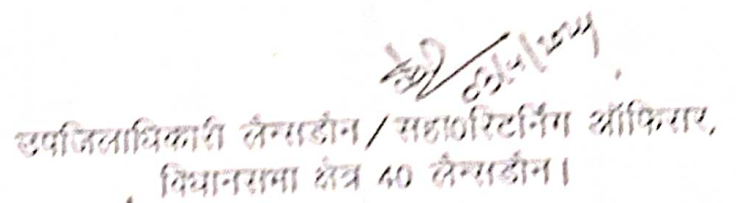 उपजिलाधिकारी लैन्सडौन / सहा०रिटर्निंग ऑफिसर,
विधानसभा क्षेत्र 40 लैन्सडौन।